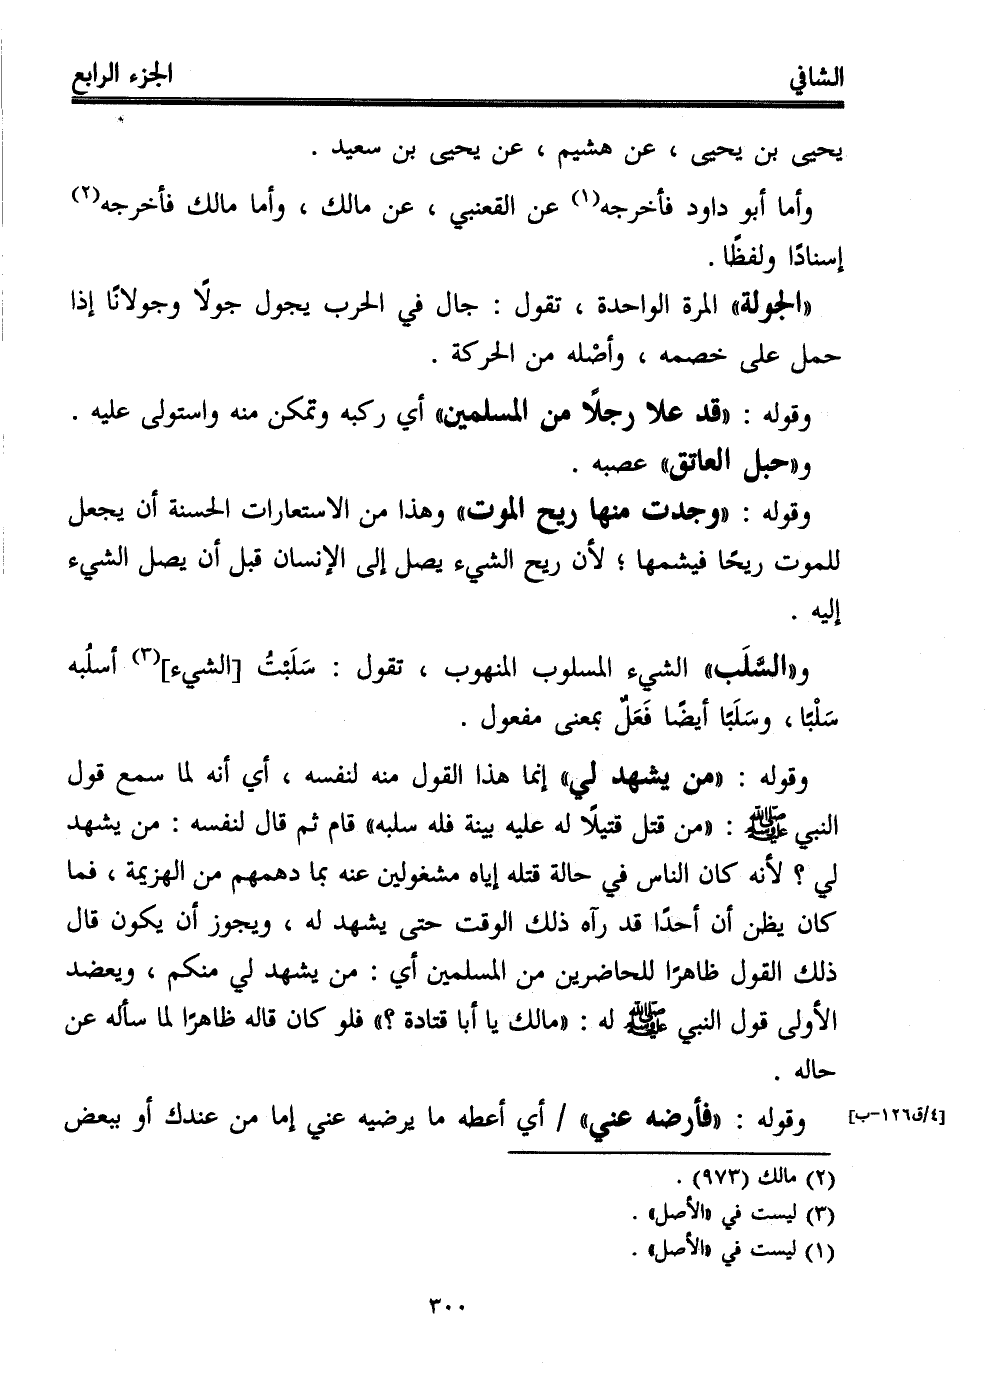 الشافي الجزء الرابع
يحيى بن يحيى ، عن هشيم ، عن يحيى بن سعيد .
وأما أبو داود فأخرجه(١) عن القعنبي ، عن مالك ، وأما مالك فأخرجه(٢)
إسنادًا ولفظًا .
«الجولة» المرة الواحدة ، تقول : جال في الحرب يجول جولًا وجولانًا إذا
حمل على خصمه ، وأصْله من الحركة .
وقوله : «قد علا رجلًا من المسلمين» أي ركبه وتمكن منه واستولى عليه .
و«حبل العاتق» عصبه .
وقوله : «وجدت منها ريح الموت» وهذا من الاستعارات الحسنة أن يجعل
للموت ريحًا فيشمها ؛ لأن ريح الشيء يصل إلى الإنسان قبل أن يصل الشيء
إليه .
و«السَّلَب» الشيء المسلوب المنهوب ، تقول : سَلَبْتُ [الشيء](٣) أسلُبه
سَلْبًا ، وسَلَبًا أيضًا فَعَلٌ بمعنى مفعول .
وقوله : «من يشهد لي» إنما هذا القول منه لنفسه ، أي أنه لما سمع قول
النبي ﷺ : «من قتل قتيلًا له عليه بينة فله سلبه» قام ثم قال لنفسه : من يشهد
لي ؟ لأنه كان الناس في حالة قتله إياه مشغولين عنه بما دهمهم من الهزيمة ، فما
كان يظن أن أحدًا قد رآه ذلك الوقت حتى يشهد له ، ويجوز أن يكون قال
ذلك القول ظاهرًا للحاضرين من المسلمين أي : من يشهد لي منكم ، ويعضد
الأولى قول النبي ﷺ له : «مالك يا أبا قتادة ؟» فلو كان قاله ظاهرًا لما سأله عن
حاله .
[٤/ق١٢٦-ب] وقوله : «فأرضه عني» / أي أعطه ما يرضيه عني إما من عندك أو ببعض
(٢) مالك (٩٧٣) .
(٣) ليست في «الأصل» .
(١) ليست في «الأصل» .
٣٠٠